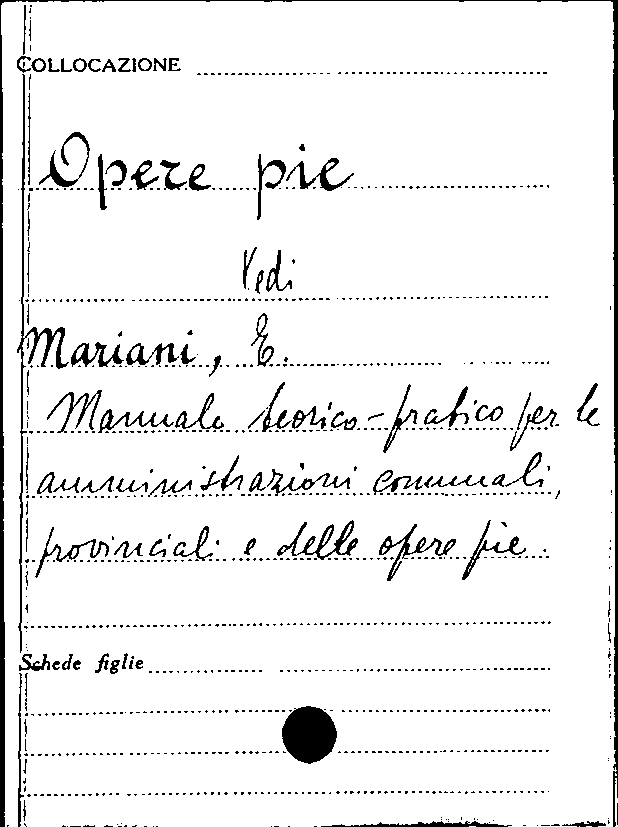 COLLOCAZIONE
Opere pie
Vedi
Mariani, E.
Manuale teorico-pratico per le
amministrazioni comunali,
provinciali e delle opere pie.
Schede figlie